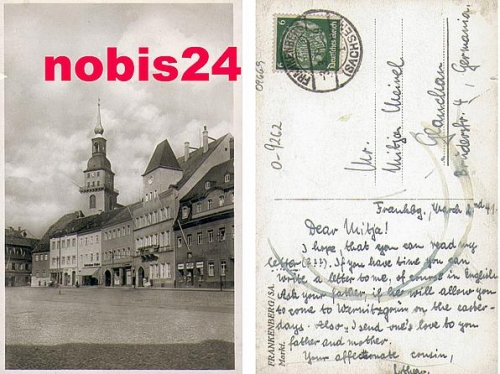 nobis24
6
Deutsches Reich
FRANKENBERG
(SACHSEN)
09669
0-9262
Mr.
Mitja Meinel
Glauchau
Brüderstr. 4, Germania.
Frankbg., March 2nd 41.
Dear Mitja!
I hope, that you can read my
letter (???). If you have time you can
write a letter to me, of course in English.
Ask your father, if he will allow you
to come to Wernitzgrün on the easter-
days. Also, I send one's love to you
father and mother.
Your affectionate cousin,
Lothar.
FRANKENBERG/SA.
Markt.